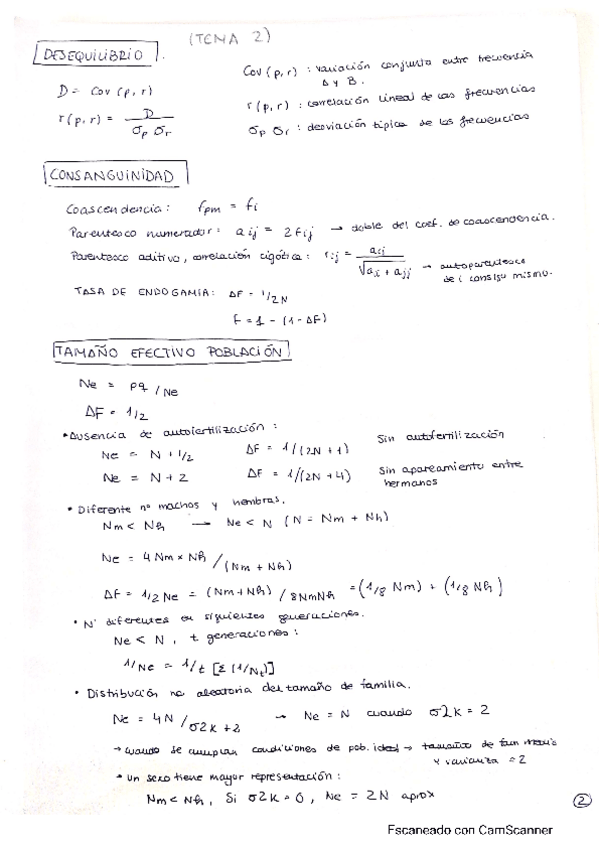 (TEMA 2)
DESEQUILIBRIO
Cov (p, r) : variación conjunta entre frecuencia
A y B.
D = Cov (p, r)
r (p, r) : correlación lineal de las frecuencias
r (p, r) = D / σp σr
σp σr : desviación típica de las frecuencias
CONSANGUINIDAD
Coascendencia: fpm = fi
Parentesco numerador: aij = 2fij → doble del coef. de coascendencia.
Parentesco aditivo, correlación cigótica: rij = aij / √aii + ajj → autoparentesco
de i consigo mismo.
TASA DE ENDOGAMIA: ΔF = 1/2N
F = 1 - (1 - ΔF)
TAMAÑO EFECTIVO POBLACIÓN
Ne = pq / Ne
ΔF = 1/2
• Ausencia de autofertilización :
Ne = N + 1/2 ΔF = 1/(2N + 1) Sin autofertilización
Ne = N + 2 ΔF = 1/(2N + 4) Sin apareamiento entre
hermanos
• Diferente nº machos y hembras.
Nm < Nh → Ne < N (N = Nm + Nh)
Ne = 4 Nm x Nh / (Nm + Nh)
ΔF = 1/2 Ne = (Nm + Nh) / 8NmNh = (1/8 Nm) + (1/8 Nh)
• N' diferentes en siguientes generaciones.
Ne < N , t generaciones :
1/Ne = 1/t [Σ (1/Nt)]
• Distribución no aleatoria del tamaño de familia.
Ne = 4N / σ2k + 2 → Ne = N cuando σ2k = 2
→ cuando se cumplan condiciones de pob. ideal → tamaño de fam media
y varianza = 2
• Un sexo tiene mayor representación :
Nm < Nh, Si σ2k = 0, Ne = 2N aprox
2
Escaneado con CamScanner